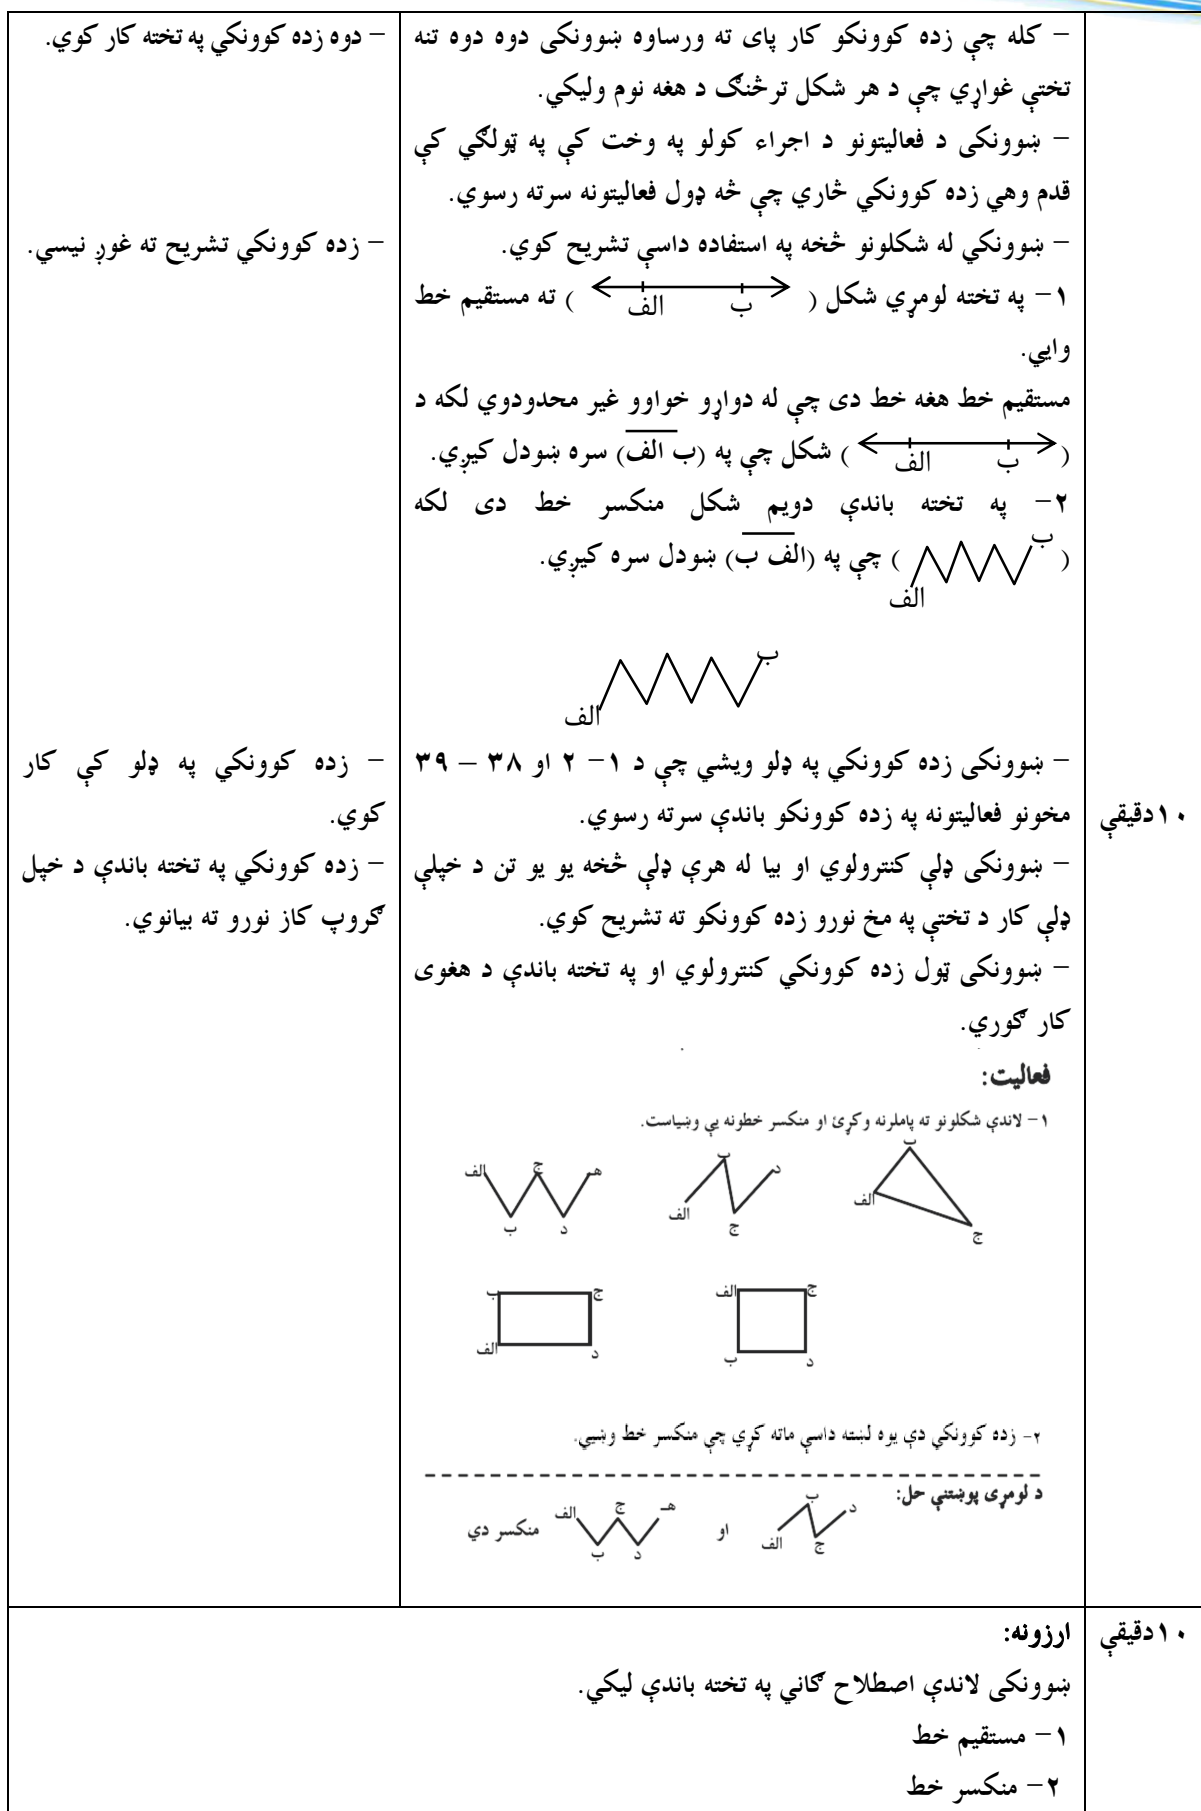 – کله چې زده کوونکو کار پای ته ورساوه ښوونکی دوه دوه تنه
تختې غواړي چې د هر شکل ترڅنګ د هغه نوم وليکي.
– ښوونکی د فعاليتونو د اجراء کولو په وخت کې په ټولګي کې
قدم وهي زده کوونکي څاري چې څه ډول فعاليتونه سرته رسوي.
– ښوونکي له شکلونو څخه په استفاده داسې تشريح کوي.
۱– په تخته لومړي شکل ( ب الف ) ته مستقيم خط
وايي.
مستقيم خط هغه خط دی چې له دواړو خواوو غير محدودوي لکه د
( ب الف ) شکل چې په (ب الف) سره ښودل کيږي.
۲– په تخته باندې دويم شکل منکسر خط دی لکه
( ب الف ) چې په (الف ب) ښودل سره کيږي.
ب
الف
– ښوونکی زده کوونکي په ډلو ويشي چې د ۱– ۲ او ۳۸ – ۳۹
مخونو فعاليتونه په زده کوونکو باندې سرته رسوي.
– ښوونکی ډلې کنترولوي او بيا له هرې ډلې څخه يو يو تن د خپلې
ډلې کار د تختې په مخ نورو زده کوونکو ته تشريح کوي.
– ښوونکی ټول زده کوونکي کنترولوي او په تخته باندې د هغوی
کار ګوري.
فعاليت:
۱– لاندې شکلونو ته پاملرنه وکړئ او منکسر خطونه يې وښياست.
ب الف ج
ب د الف ج
الف ج هـ ب د
الف ج ب د
ب ج الف د
۲– زده کوونکي دې يوه لښته داسې ماته کړي چې منکسر خط وښيي.
د لومړی پوښتنې حل:
ب د الف ج او الف ج هـ ب د منکسر دي
– دوه زده کوونکي په تخته کار کوي.
– زده کوونکي تشريح ته غوږ نيسي.
– زده کوونکي په ډلو کې کار
کوي.
– زده کوونکي په تخته باندې د خپل
ګروپ کاز نورو ته بيانوي.
۱۰دقيقې
۱۰دقيقې
ارزونه:
ښوونکی لاندې اصطلاح ګاني په تخته باندې ليکي.
۱– مستقيم خط
۲– منکسر خط